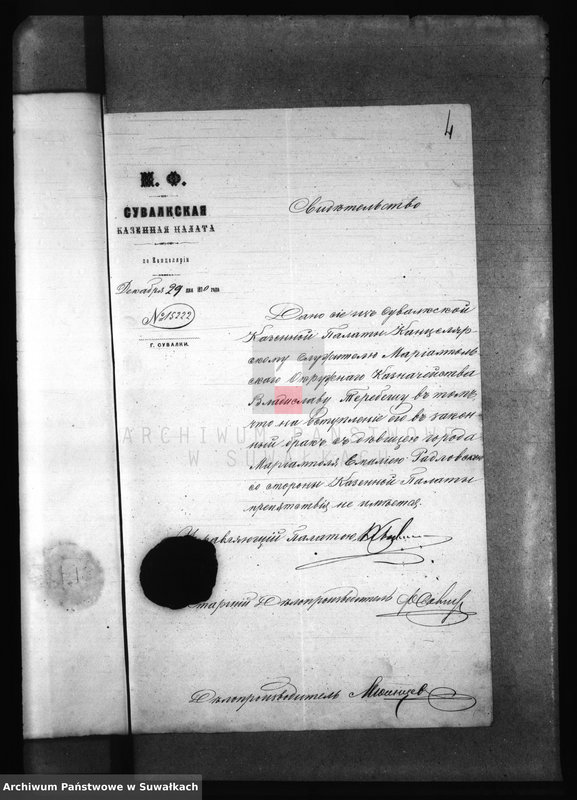 4
М. Ф.
СУВАЛКСКАЯ
КАЗЕННАЯ ПАЛАТА
по Канцеляріи
Декабря 29 дня 18 0 года
№ 15222
Г. СУВАЛКИ.
Свидѣтельство
Дано сіе изъ Сувалкской
Казенной Палаты Канцеляр-
скому Служителю Маріампольскаго
Окружнаго Казначейства
Владиславу въ томъ,
что на вступленіе его въ закон-
ный бракъ съ дѣвицею города
Маріамполя Радловскою
со стороны Казенной Палаты
препятствія не имѣется.
Управляющій Палатою
Старшій Дѣлопроизводитель
Дѣлопроизводитель
ARCHIWUM PAŃSTWOWE
W SUWAŁKACH
Archiwum Państwowe w Suwałkach